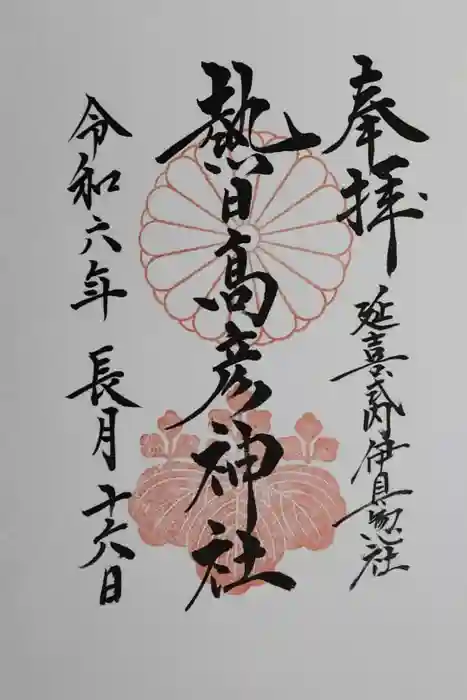 奉拝
延喜式内伊具惣社
熱日高彦神社
令和六年 長月 十六日